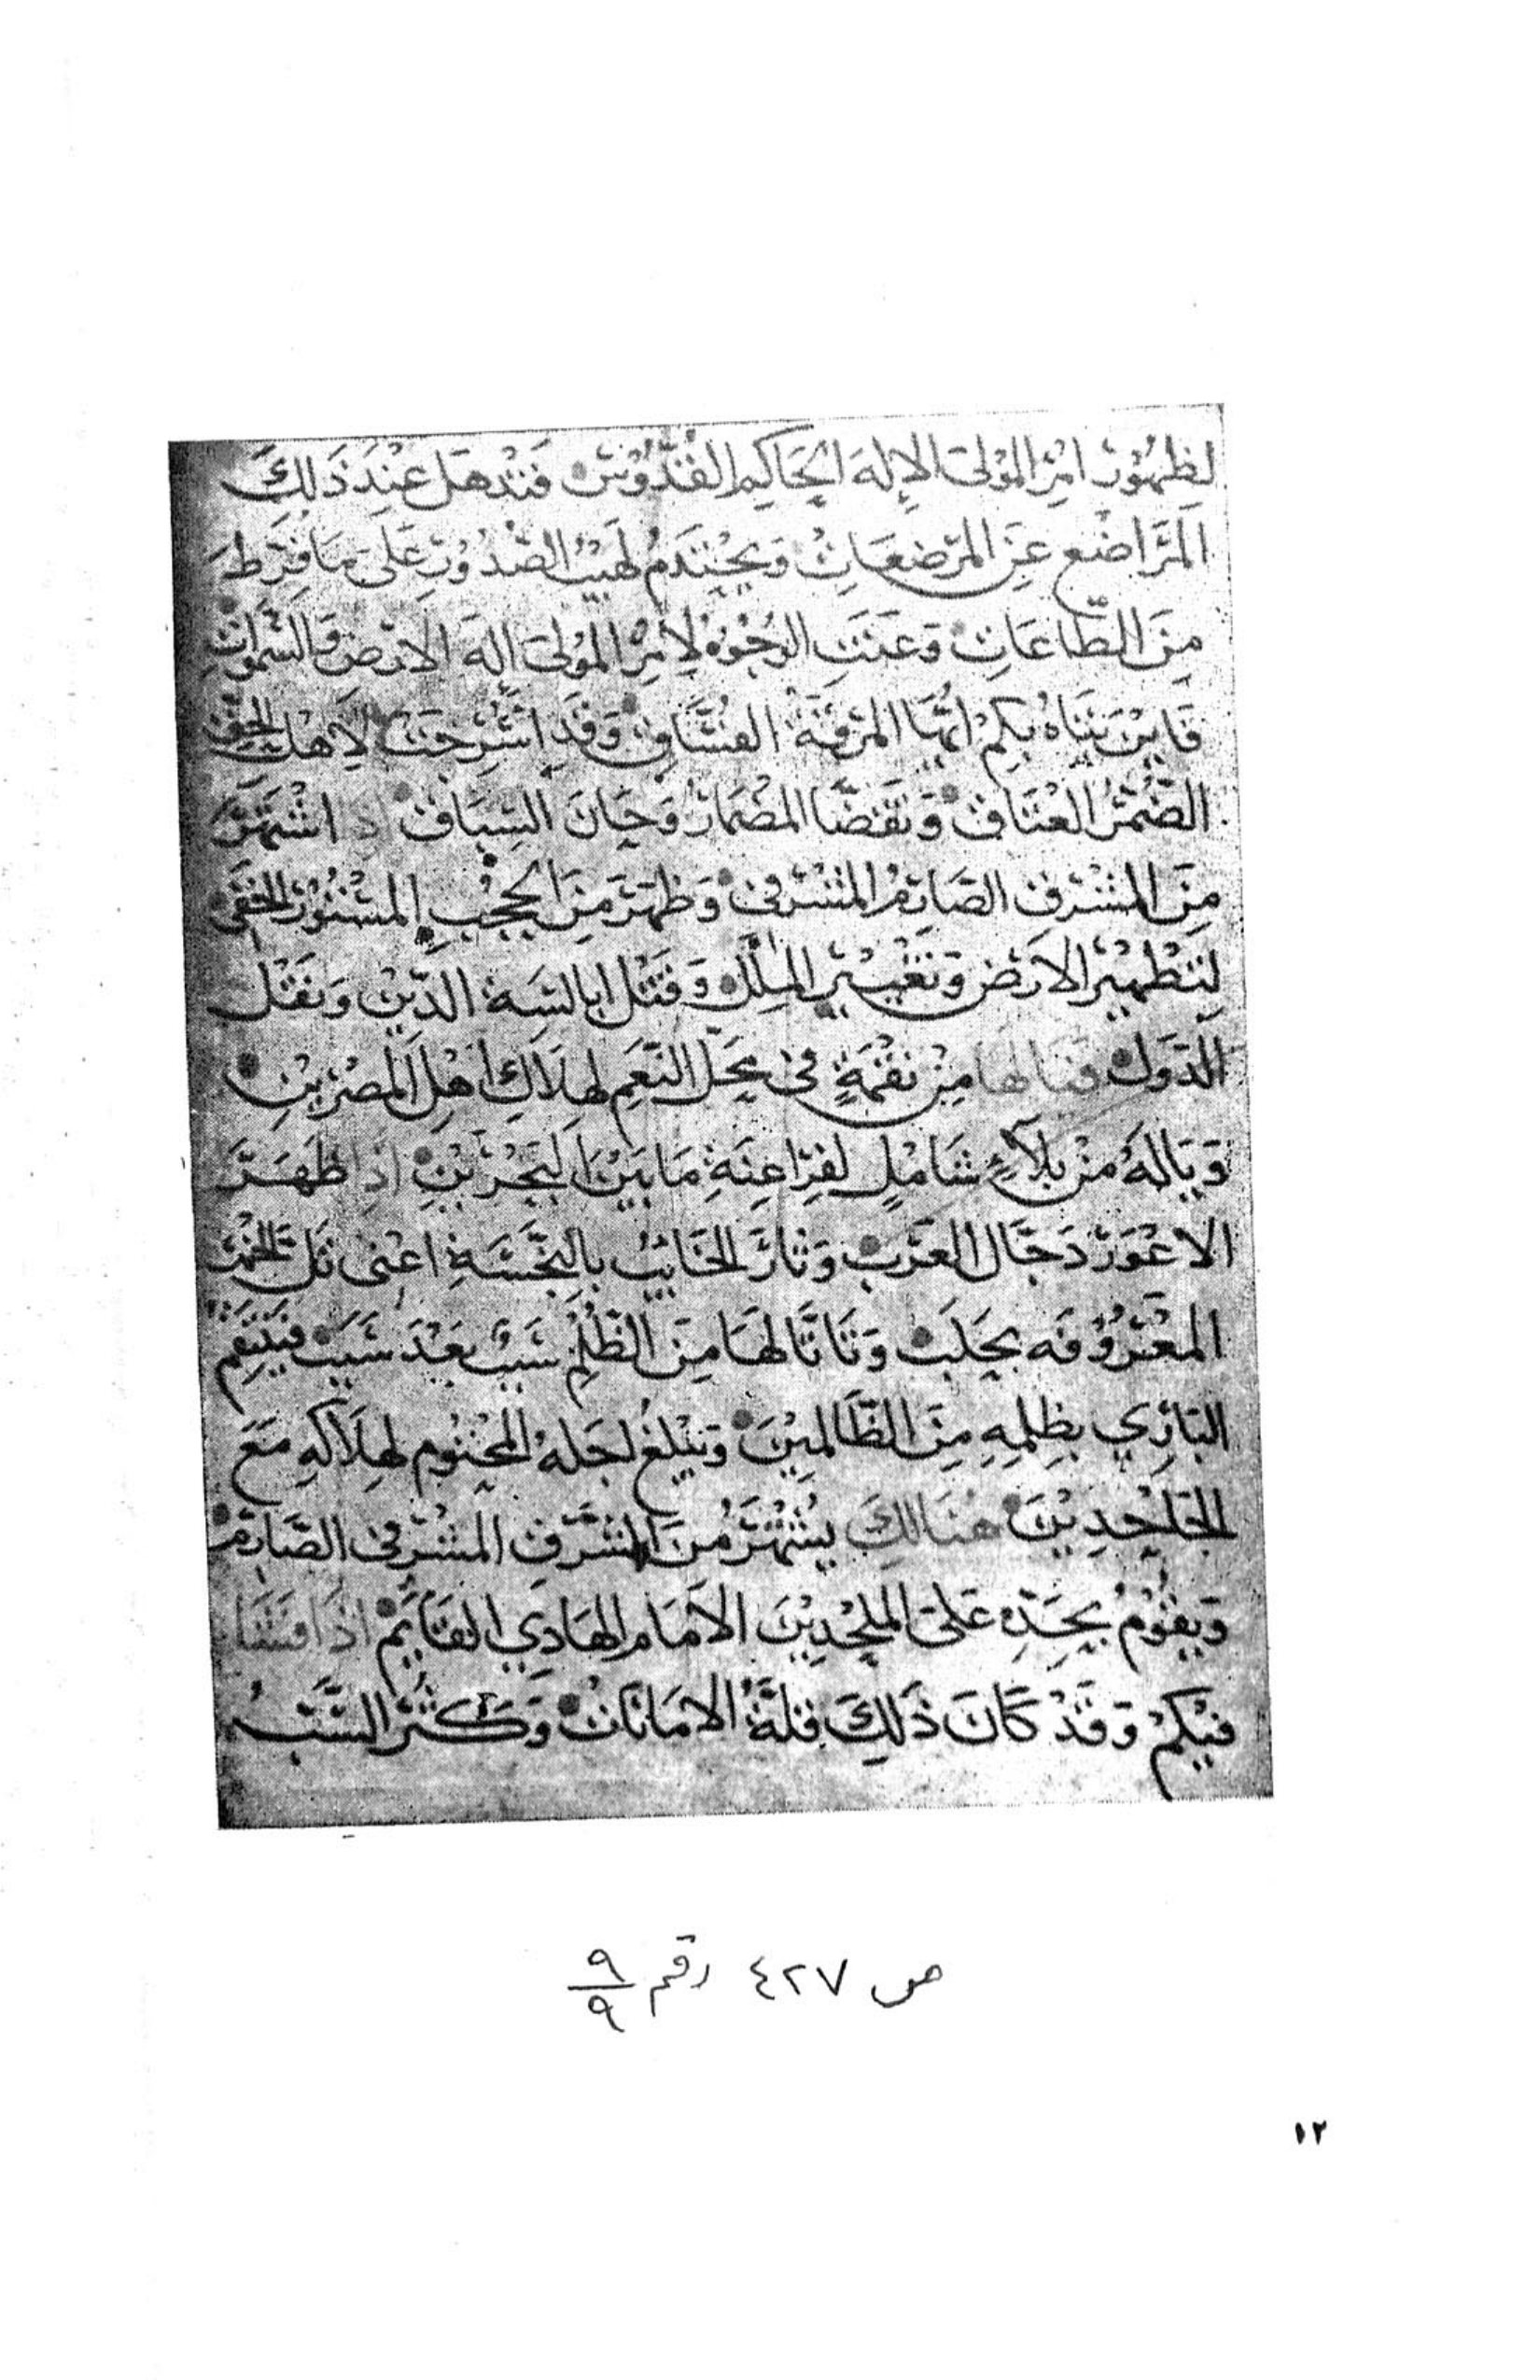 لِظُهُوْرِ امْرِ المَوْلىَ الاِلهَ الحَاكِمِ القُدُّوْسْ فَتَدْهَل عِنْدَ ذَلِكَ
المَرَاضْع عَنِ المرْضعَاتْ وَيحْتَدَمُ لَهيْبُ الصُدُوْرِ عَلىَ مَا فرَط
مِنَ الطّاعَاتِ وَعَنَتِ الوُجُوْهُ لِأمْرِ المَوْلىَ الهَ الارْضِ وَالسَّمَوَاتِ
فَايْنَ يَتَاهُ بِكمْ ايُّهَا المرَقَةُ الفُسَّاقْ وَقَد اسْرِجَتْ لِاَهْل الحَقّ
الضُّمْرُ العتَاقْ وَتقَضَّا المضْمَارُ وَحَانَ السِبَاقْ اذ اشْتَهَرَ
مِنَ المشْرِقِ الصَارِمُ المشْرَفي وَظهَرَ مِنَ الحُجُبِ المَسْتُوْرُ الخَفَي
لِتَطْهِيْرِ الارْضِ وَتغْييْرِ المِلَلْ وَقَتْل ابَالسَةِ الدّيْنِ وَنَقْل
الدّوَل فَيَا لهَا مِنْ نقْمَةٍ في مَحَلّ النّعَمِ لِهلَاكِ اَهْل المصْرَيْنِ
وَيَالَهُ مَنْ بلَآءٍ شَامْلٍ لفرَاعِنَةِ مَا بَيْنَ البَحْرَيْنِ اذا ظهَرَ
الاعْوَرُ دَجَّال العَرَبِ وَثارَ الخَايْبُ بالنَّجَسَةِ اعْني تَلّ الخمْر
المعْرُوْفَه بحَلَبْ وَتَاتَّا لهَا مِنَ الظُلْمِ سَبَبٌ بَعْدَ سَبَب فيَنْتَقِمْ
البَارْي بظلمِهِ مِنَ الظّالمِيْنَ وَيبْلغُ اجَلهُ المحْتُوم لِهلَاكهِ مَعَ
الجَاحِدِيْنَ هُنَالكَ يُشْتَهَرُ مِنَ المشرِقِ المشْرَفي الصَّارِمْ
وَيقُوْمُ بِحَدّهِ عَلىَ الملْحِدِيْنَ الاَمَام الهَادِي القَايَمْ اذَا فشَا
فيْكمْ وَقَدْ كَانَ ذَلِكَ قلَّةُ الاَمَانَات وَكَثُرَ السَّبُ
ص ٤٢٧ رقم ٩/٩
١٢